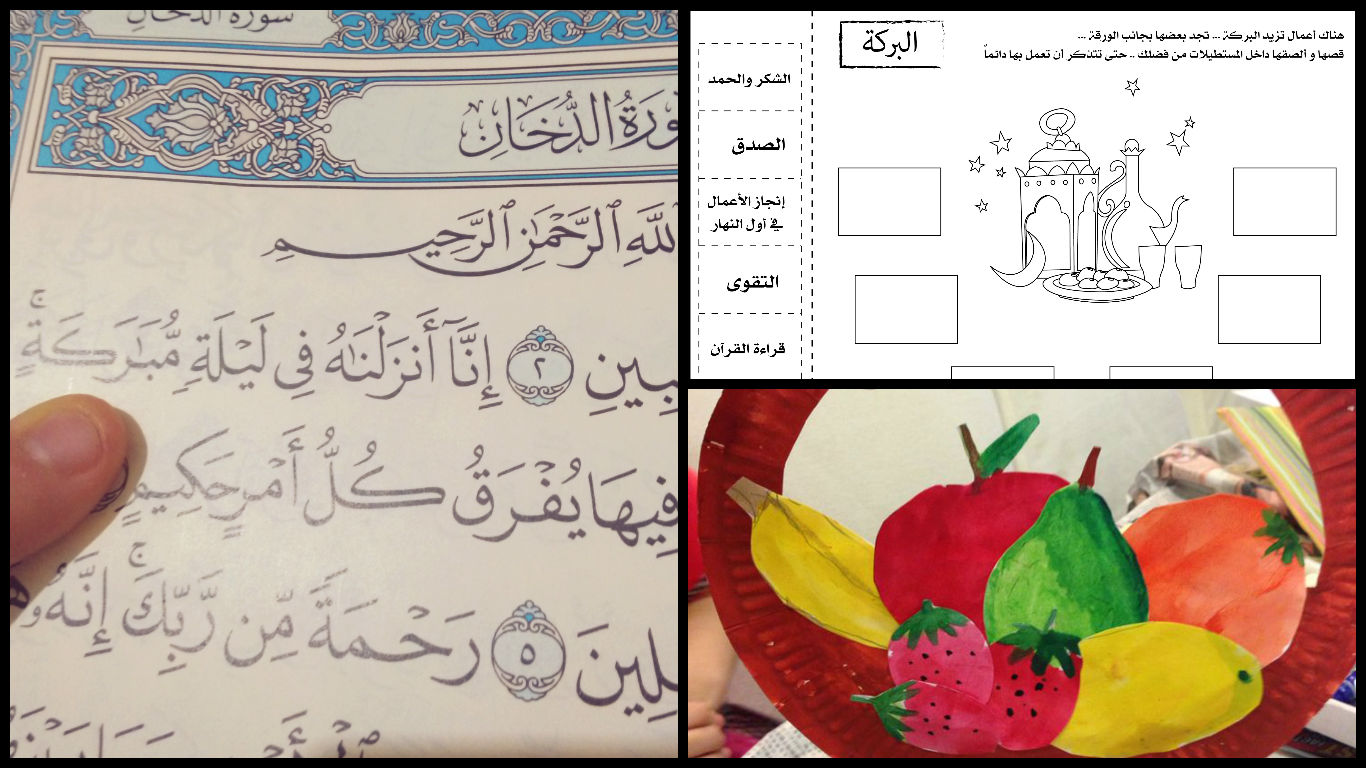 سورة الدخان
سُورَةُ الدُّخَانِ
ٱللَّهِ ٱلرَّحْمَٰنِ ٱلرَّحِيمِ
٢ إِنَّآ أَنزَلْنَٰهُ فِى لَيْلَةٍ مُّبَٰرَكَةٍ ۚ
فِيهَا يُفْرَقُ كُلُّ أَمْرٍ حَكِيمٍ
٥ رَحْمَةً مِّن رَّبِّكَ ۚ إِنَّهُۥ
البركة
هناك أعمال تزيد البركة ... تجد بعضها بجانب الورقة ...
قصها و ألصقها داخل المستطيلات من فضلك .. حتى تتذكر أن تعمل بها دائماً
الشكر والحمد
الصدق
إنجاز الأعمال
في أول النهار
التقوى
قراءة القرآن